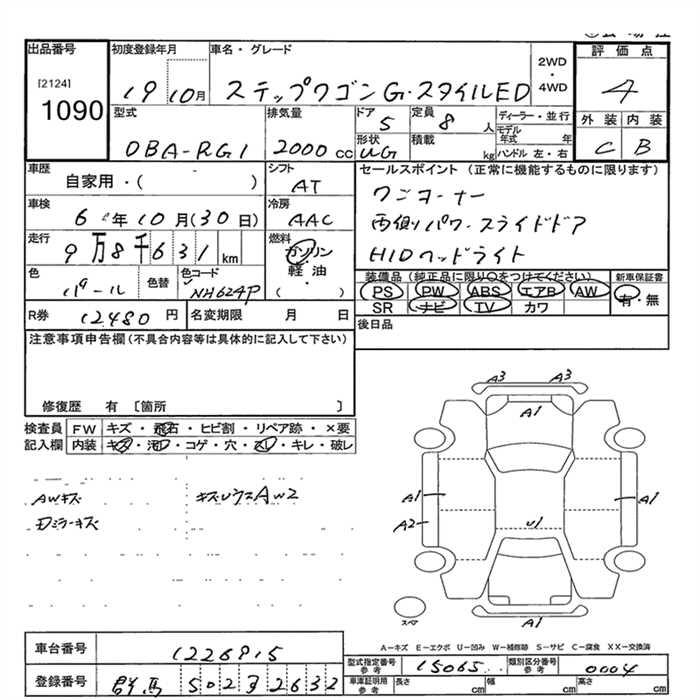 出品番号 初度登録年月 車名・グレード 2WD ・ 4WD 評価点
[2124] 1090 19 10月 ステップワゴンG・スタイルED 4
型式 排気量 ドア 5 定員 8 人 ディーラー・並行 外装 内装
DBA-RG1 2000 cc 形状 UG 積載 kg モデル年式 年 ハンドル 左・右 C B
車歴 自家用・( ) シフト AT セールスポイント (正常に機能するものに限ります)
車検 6 年 10 月 (30 日) 冷房 AAC ワンオーナー
両側パワースライドドア
走行 9万8千631 km 燃料 ガソリン 軽・油 ( ) HIDヘッドライト
色 パール 色替 色コード NH624P 装備品 (純正品に限り○をつけてください) 新車保証書
PS PW ABS エアB AW 有・無
SR ナビ TV カワ
R券 12480 円 名変期限 月 日 後日品
注意事項申告欄(不具合内容等は具体的に記入して下さい)
修復歴 有 〔箇所 〕
検査員 FW キズ・飛石・ヒビ割・リペア跡・×要
記入欄 内装 キズ・汚レ・コゲ・穴・スレ・キレ・破レ
AWキズ
Dミラーキズ
A3 A3
A1
A1 A1
A2
U1
A1
スペア
A-キズ E-エクボ U-凹み W-補修跡 S-サビ C-腐食 XX-交換済
車台番号 1226815
型式指定番号 参考 15065 類別区分番号 参考 0004
登録番号 群馬 502
車庫証明用 参考 長さ cm 幅 cm 高さ cm